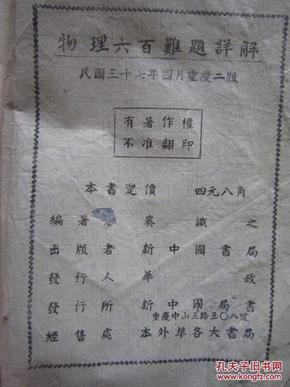 物理六百難題詳解
民國三十七年四月重慶二版
有著作權
不准翻印
本書定價 四元八角
編著者 吳識之
出版者 新中國書局
發行人 華政
發行所 新中國書局
重慶中山三路三〇八號
經售處 本外埠各大書局
孔夫子旧书网